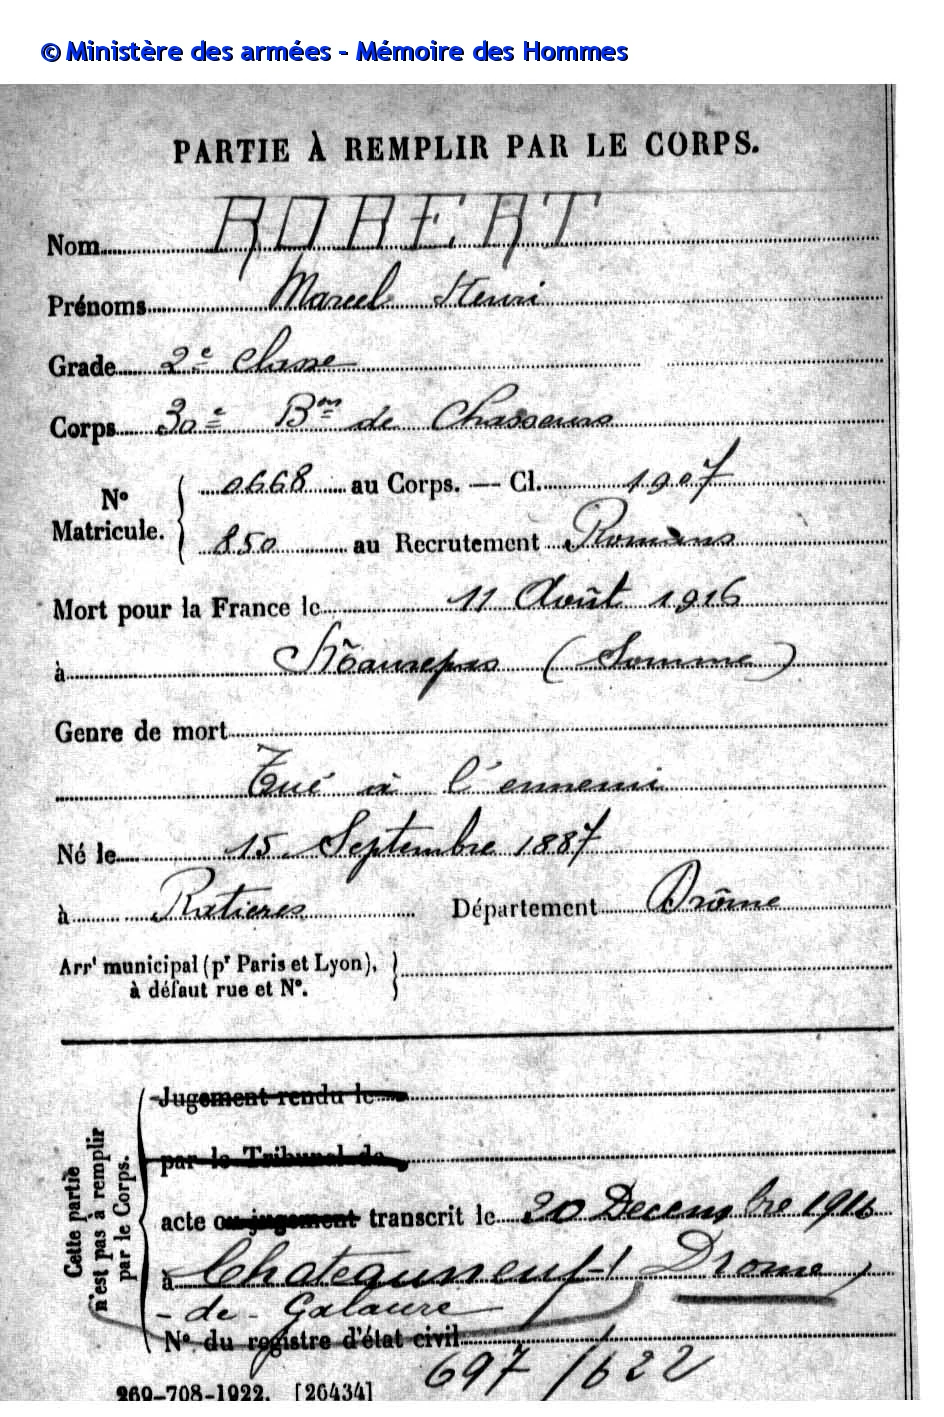 © Ministère des armées - Mémoire des Hommes
PARTIE À REMPLIR PAR LE CORPS.
Nom ROBERT
Prénoms Marcel Henri
Grade 2e classe
Corps 30e Bon de Chasseurs
N° Matricule. 0668 au Corps. — Cl. 1907
850 au Recrutement Romans
Mort pour la France le 11 Août 1916
à (Somme)
Genre de mort
Tué à l'ennemi
Né le 15 Septembre 1887
à Ratieres Département Drôme
Arrt municipal (pr Paris et Lyon),
à défaut rue et N°.
Cette partie
n'est pas à remplir
par le Corps.
Jugement rendu le
par le Tribunal de
acte ou jugement transcrit le 20 Decembre 1916
à Chateauneuf Drome
- de - Galaure
N° du registre d'état civil
697/622
269-708-1922. [26434]